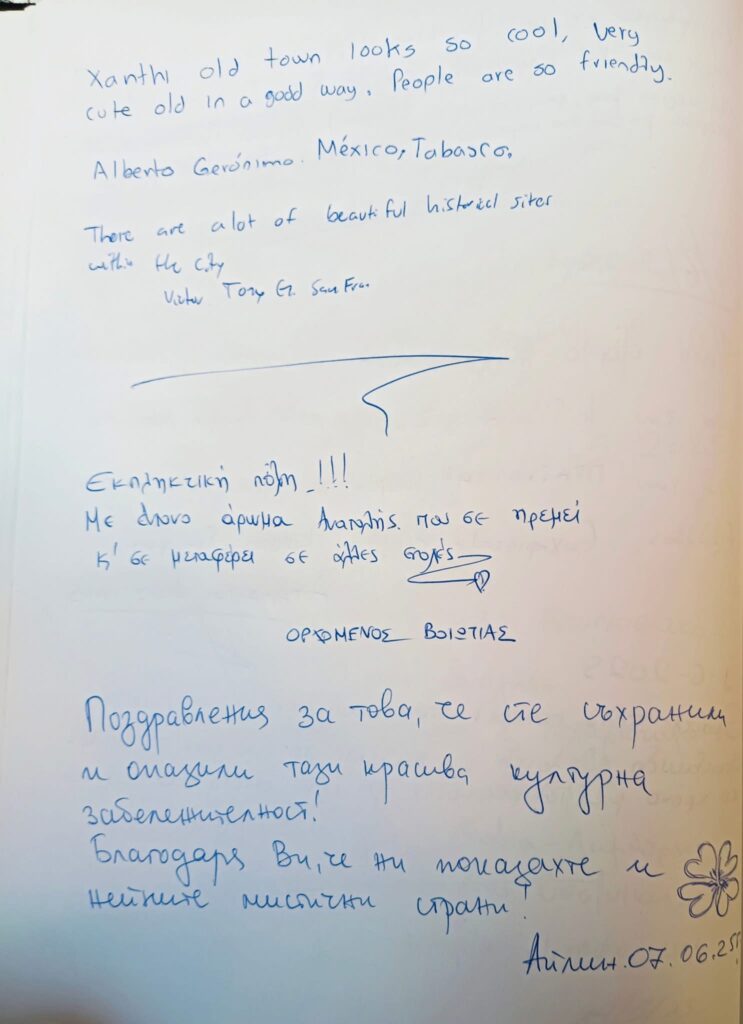 Xanthi old town looks so cool, very
cute old in a good way. People are so friendly.
Alberto Gerónimo. México, Tabasco.
There are alot of beautiful historical sites
within the city
Victor Tony Gz. San Fran.
Εκπληκτική πόλη !!!
Με έντονο άρωμα Ανατολής που σε ηρεμεί
κ' σε μεταφέρει σε άλλες εποχές
ΟΡΧΟΜΕΝΟΣ ΒΟΙΩΤΙΑΣ
Поздравления за това, че сте съхранили
и опазили тази красива културна
забележителност!
Благодаря Ви, че ни показахте и
нейните мистични страни!
Айлин. 07.06.25г.